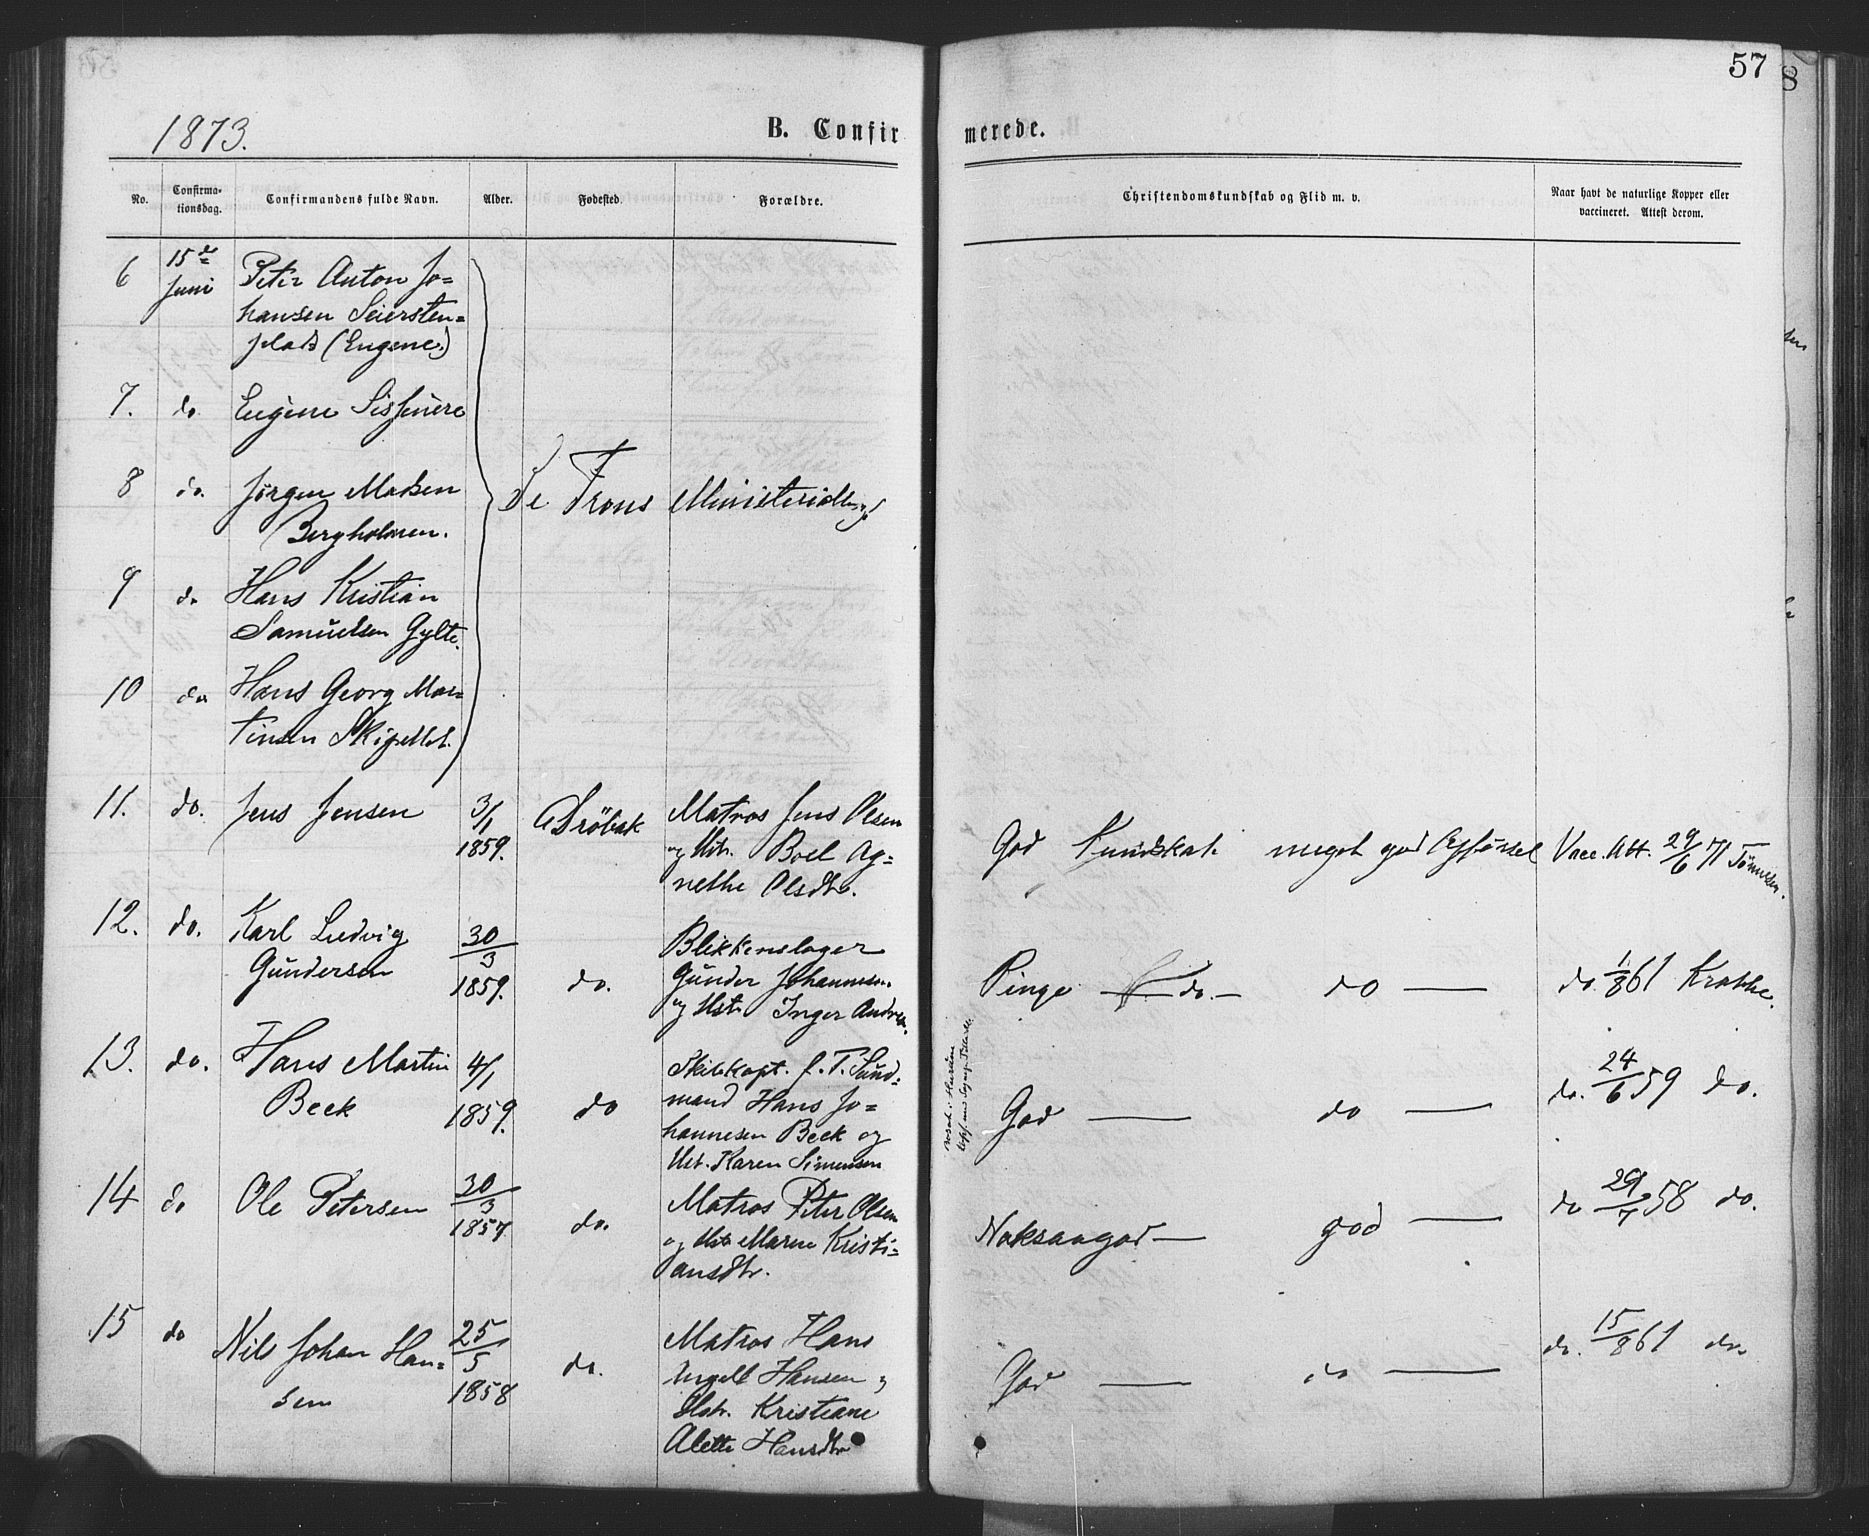 57
8
1873.
B. Confir merede.
No. Confirma- tionsdag. Confirmandens fulde Navn. Alder. Fødested. Forældre. Christendomskundskab og Flid m. v. Naar havt de naturlige Kopper eller vaccineret. Attest derom.
6 15de Juni Peter Anton Jo-
hansen Seiersten-
plads (Eugene.)
7. do Eugene
8 do. Jørgen Madsen
Bergholmen.
Se Frons Ministerialbog
9 do Hans Kristian
Samuelsen Gylte.
10 do Hans Georg Mar-
tinsen
11. do. Jens Jensen 3/1 1859. Drøbak Matros Jens Olsen
og Hst. Boel Ag-
nethe Olsdtr.
God Kundskab meget god Opførsel Vacc. Att. 29/6 71 Tønnesen.
12. do. Karl Ludvig
Gundersen
30/3 1859. do. Blikkenslager
Gunder Johannesen
og Hst. Inger Andrea.
Ringe do. do do 1/8 61 Krabbe.
13. do. Hans Martin
Beck
4/1 1859. do Skibskapt. f. T. Sund-
mand Hans Jo-
hannesen Beck og
Hst. Karen Simensen
God do do. 24/6 59 do.
14 do Ole Petersen 30/3 1857 do. Matros Peter Olsen
og Hst Maren Kristi-
ansdtr.
Noksaagod god do 29/7 58 do.
15 do Nils Johan Han-
sen
25/5 1858 do. Matros Hans
Engelb Hansen og
Hstr. Kristiane
Alette Hansdtr
God do do. 15/8 61 do.